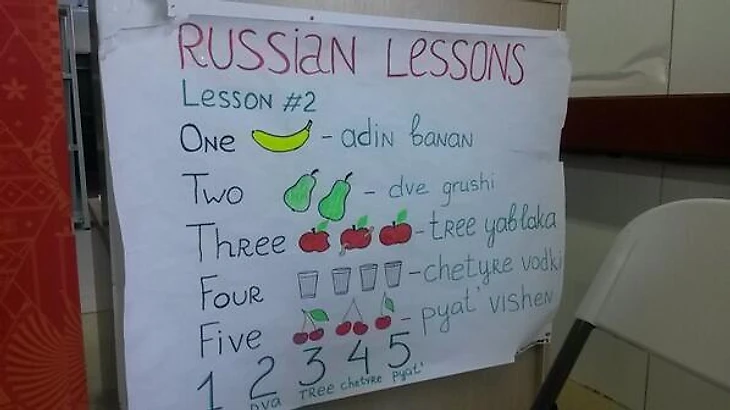 RUSSIAN LESSONS
LESSON #2
ONE - adin banan
Two - dve grushi
Three - tree yablaka
Four - chetyre vodki
Five - pyat' vishen
1 2 3 4 5
DVA TREE chetyre pyat'